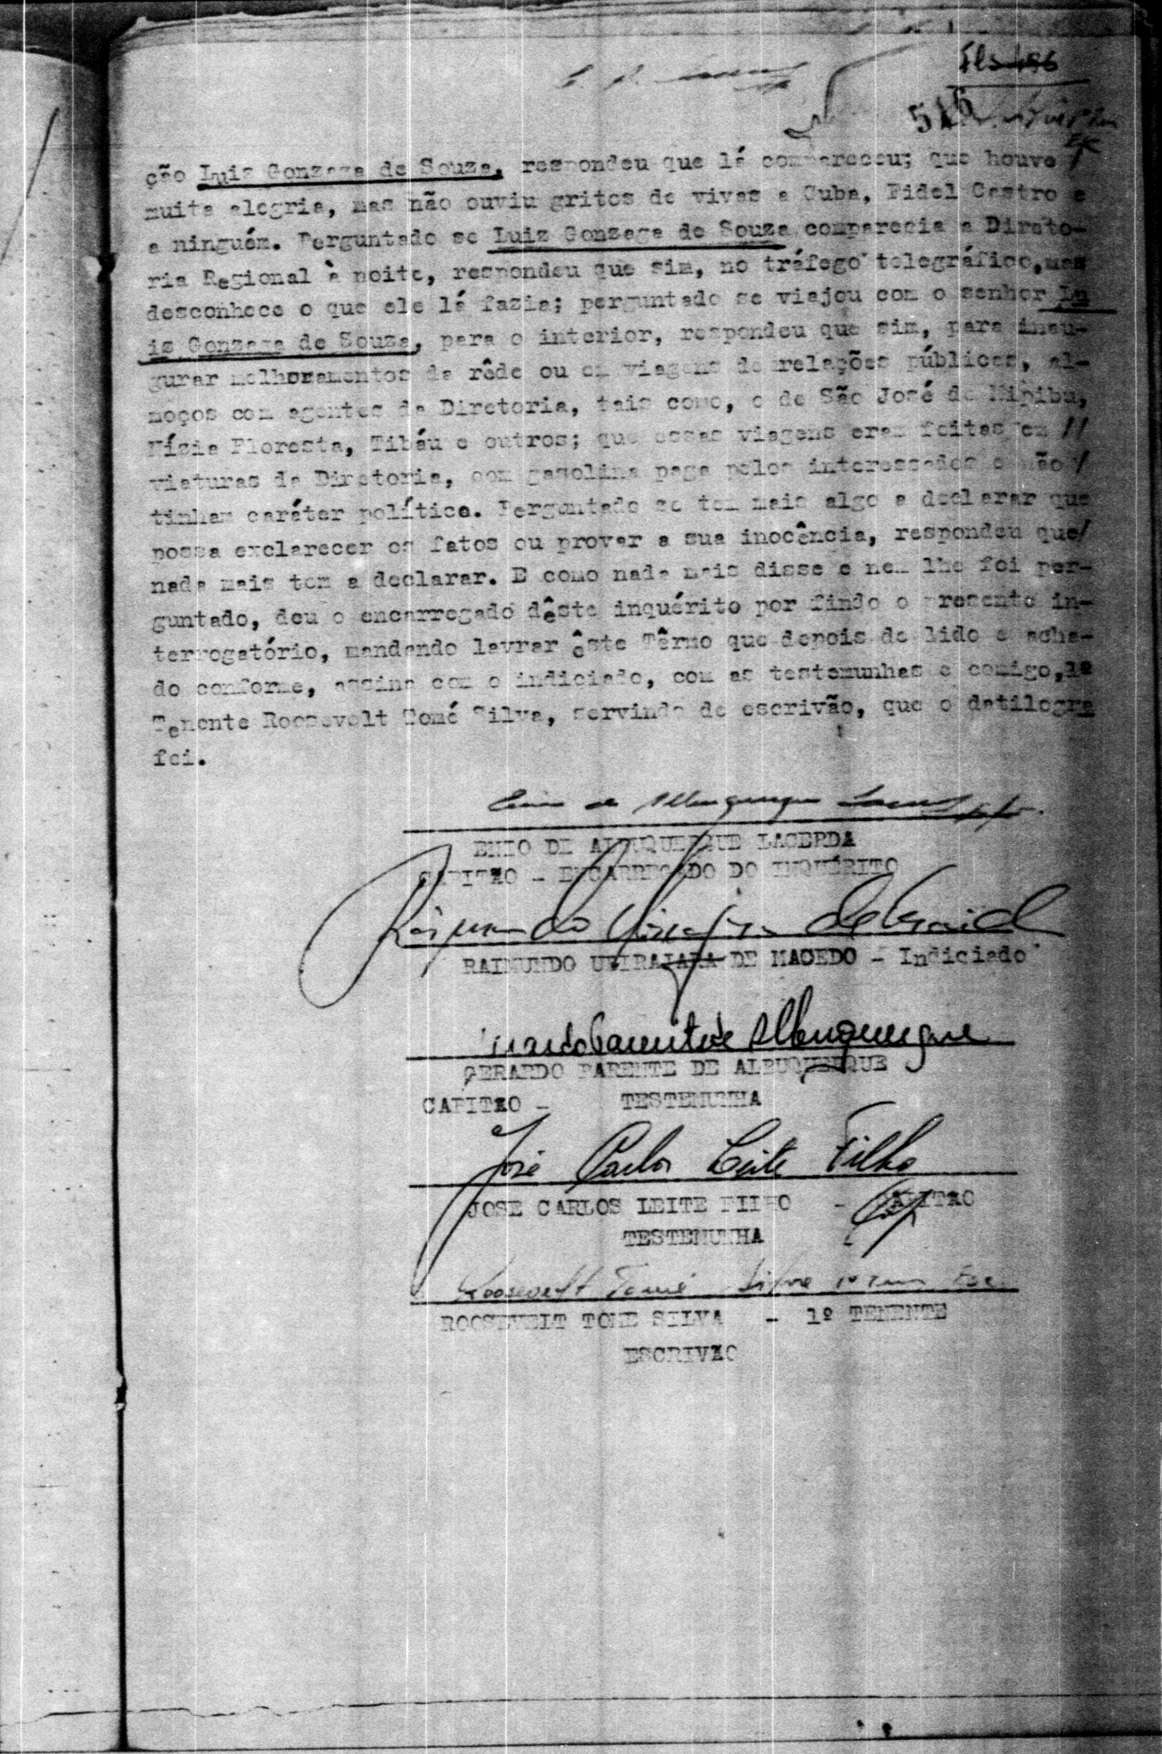 Fls 196
516
ção Luiz Gonzaga de Souza, respondeu que lá compareceu; que houve
muita alegria, mas não ouviu gritos de vivas a Cuba, Fidel Castro e
a ninguém. Perguntado se Luiz Gonzaga de Souza comparecia a Direto-
ria Regional à noite, respondeu que sim, no tráfego telegráfico, mas
desconhece o que ele lá fazia; perguntado se viajou com o senhor Lu
iz Gonzaga de Souza, para o interior, respondeu que sim, para inau-
gurar melhoramentos da rêde ou em viagens de relações públicas, al-
moços com agentes da Diretoria, tais como, o de São José de Mipibu,
Nízia Floresta, Tibáu e outros; que essas viagens eram feitas em //
viaturas da Diretoria, com gasolina paga pelos interessados e não /
tinham caráter política. Perguntado se tem mais algo a declarar que
possa exclarecer os fatos ou provar a sua inocência, respondeu que/
nada mais tem a declarar. E como nada mais disse e nem lhe foi per-
guntado, deu o encarregado dêste inquérito por findo o presente in-
terrogatório, mandando lavrar êste Têrmo que depois de lido e acha-
do conforme, assina com o indiciado, com as testemunhas e comigo, 1º
Tenente Roosevelt Tomé Silva, servindo de escrivão, que o datilogra
fei.
Enio de Albuquerque Lacerda
ENIO DE ALBUQUERQUE LACERDA
CAPITÃO - ENCARREGADO DO INQUÉRITO
Raimundo Ubirajara de Macedo
RAIMUNDO UBIRAJARA DE MACEDO - Indiciado
Gerardo Parente de Albuquerque
GERARDO PARENTE DE ALBUQUERQUE
CAPITÃO - TESTEMUNHA
José Carlos Leite Filho
JOSE CARLOS LEITE FILHO - CAPITÃO
TESTEMUNHA
Roosevelt Tomé Silva 1º Ten Esc.
ROOSEVELT TOME SILVA - 1º TENENTE
ESCRIVÃO